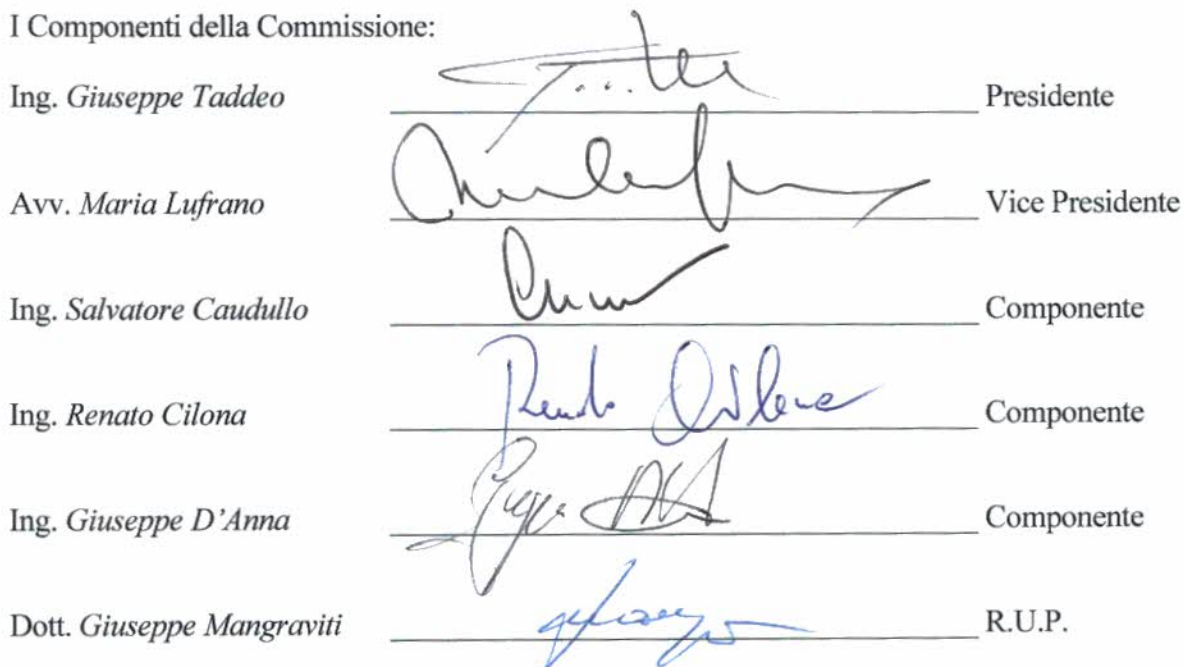 I Componenti della Commissione:
Ing. Giuseppe Taddeo Presidente
Avv. Maria Lufrano Vice Presidente
Ing. Salvatore Caudullo Componente
Ing. Renato Cilona Renato Cilona Componente
Ing. Giuseppe D'Anna Componente
Dott. Giuseppe Mangraviti R.U.P.